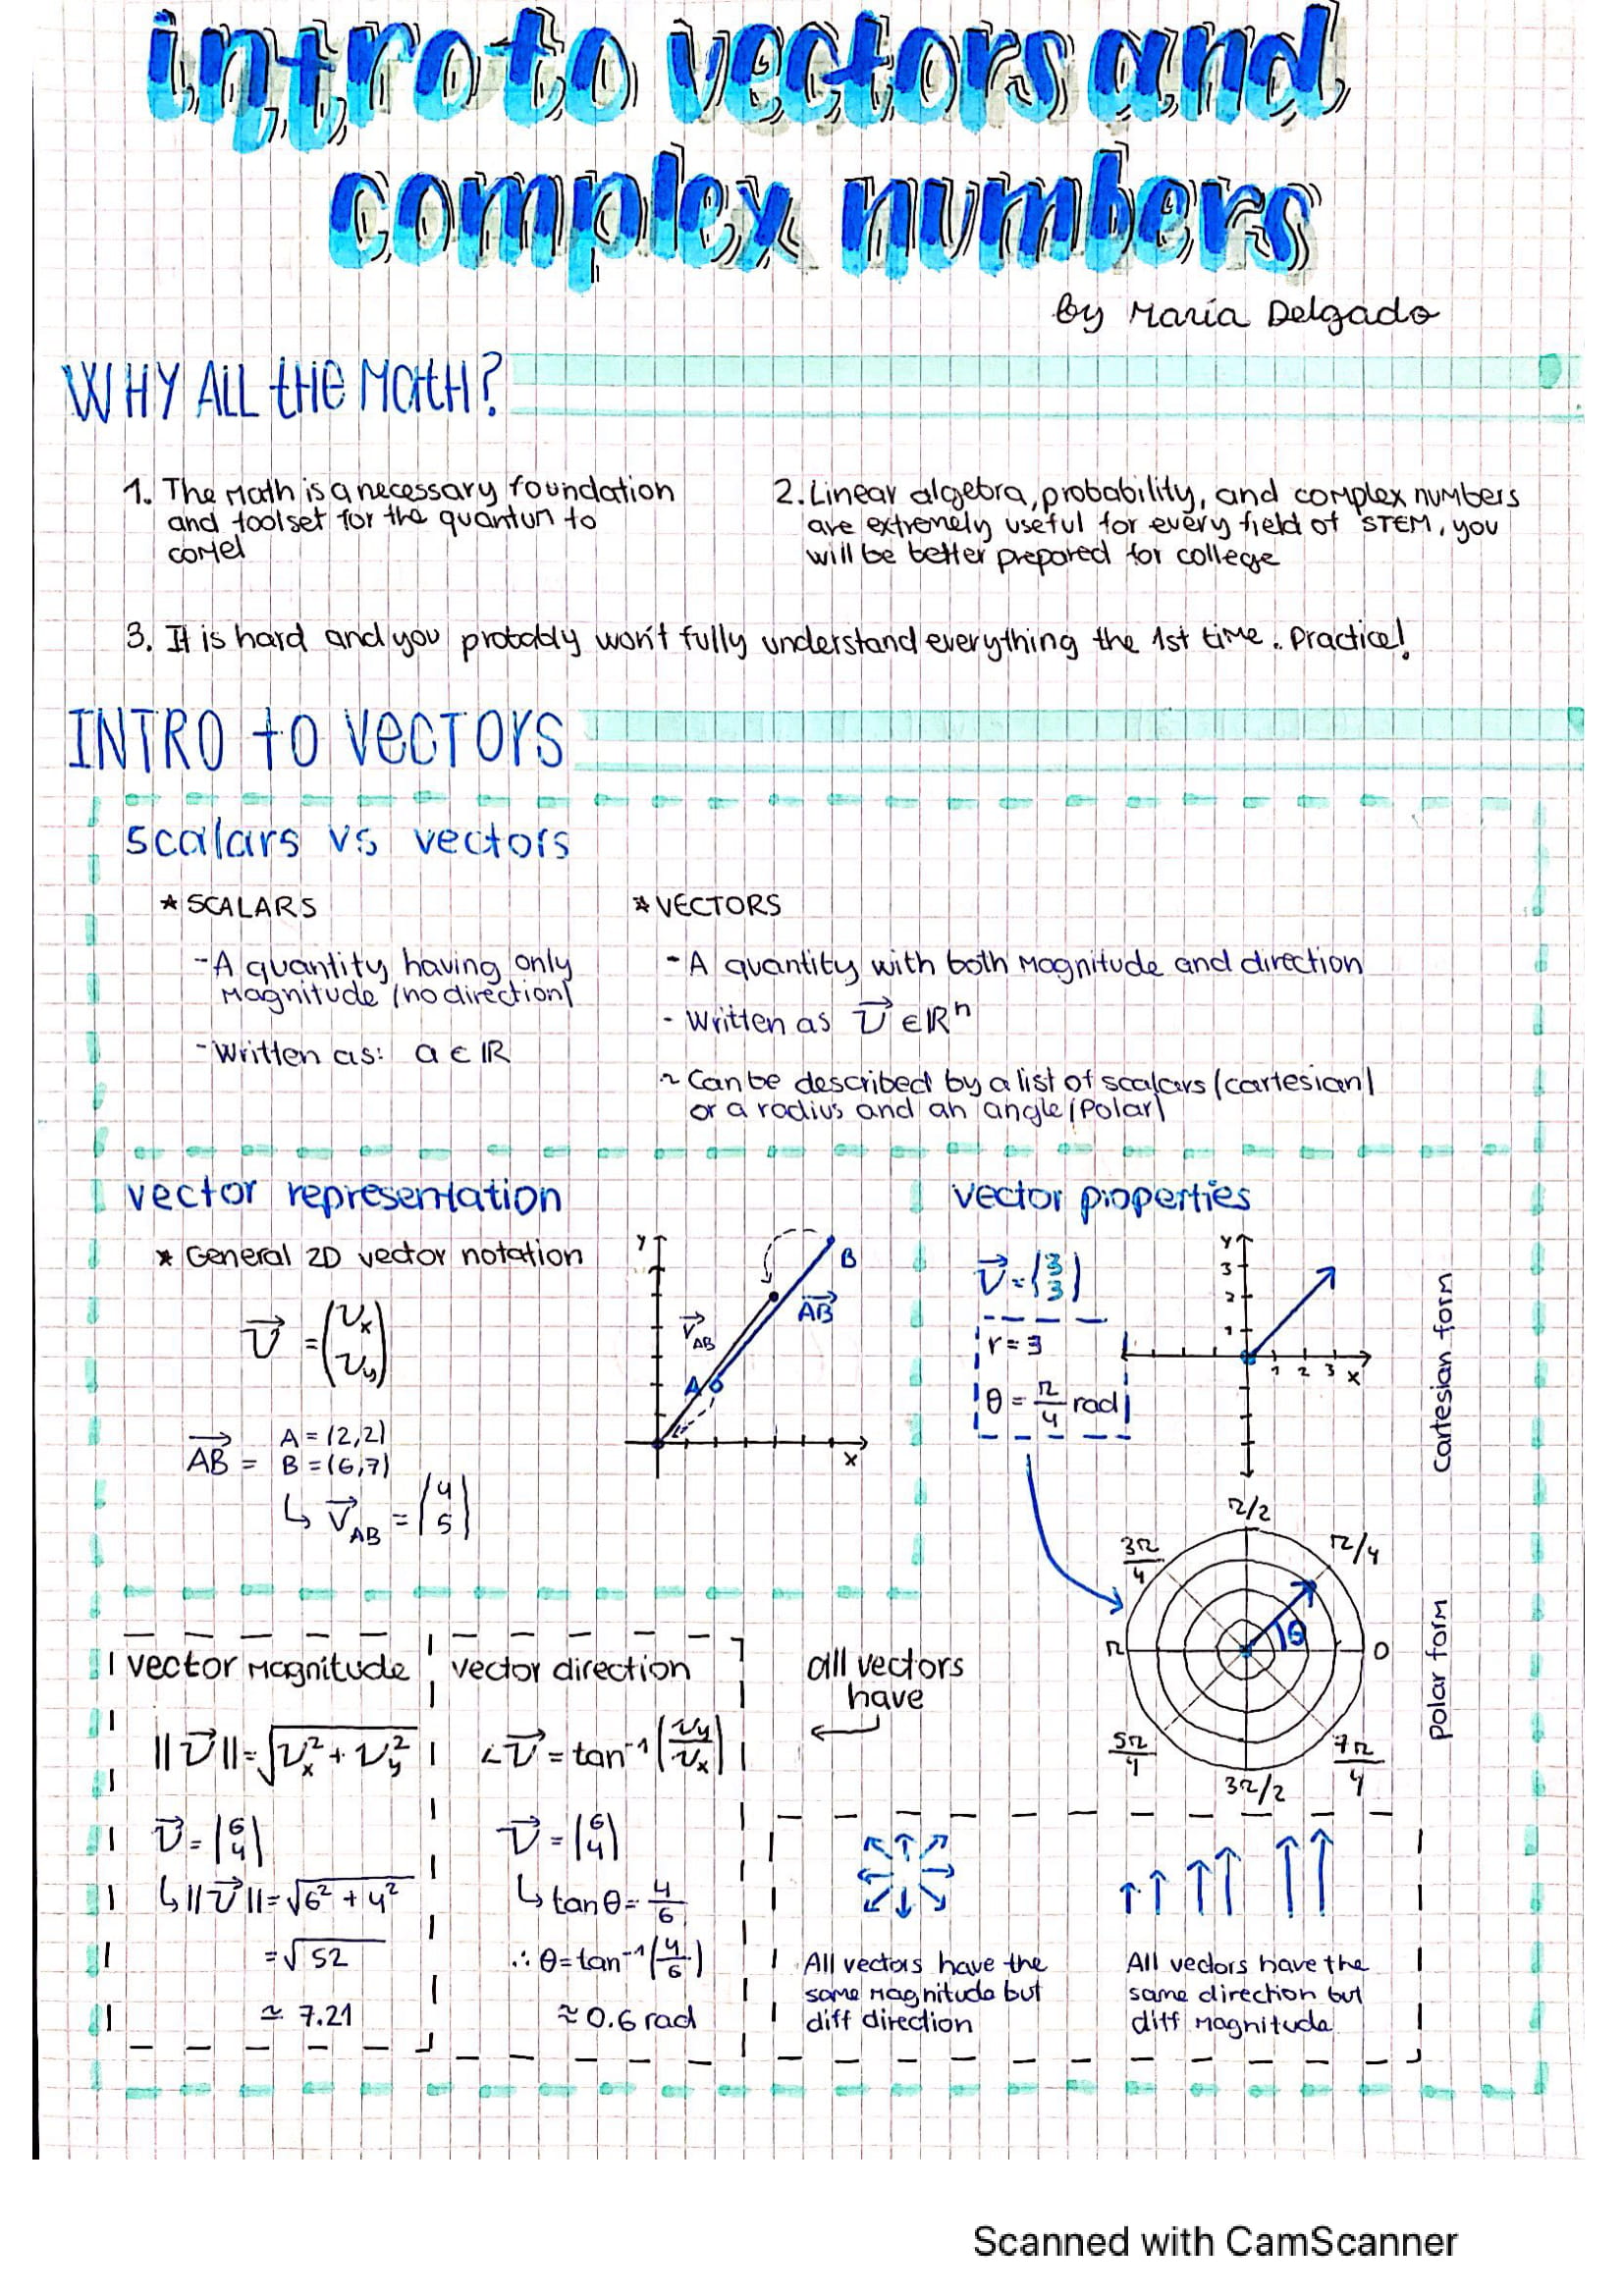 intro to vectors and
complex numbers
by María Delgado
WHY ALL the Math?
1. The Math is a necessary foundation
and toolset for the quantun to
come!
2. Linear algebra, probability, and complex numbers
are extremely useful for every field of STEM, you
will be better prepared for college
3. It is hard and you probably won't fully understand everything the 1st time. Practice!
INTRO to vectors
scalars vs vectors
* SCALARS
- A quantity having only
Magnitude (no direction)
- Written as: a ∈ ℝ
* VECTORS
- A quantity with both Magnitude and direction
- Written as v⃗ ∈ ℝⁿ
~ Can be described by a list of scalars (cartesian)
or a radius and an angle (Polar)
vector representation
* General 2D vector notation
v⃗ = (vₓ
v_y)
AB⃗ = A = (2,2)
B = (6,7)
↳ v⃗_AB = (4
5)
y
B
AB⃗
v⃗_AB
A
x
vector properties
v⃗ = (3
3)
r = 3
θ = π/4 rad
y
3
2
1
1 2 3 x
Cartesian form
π/2
3π/4
π/4
θ
π
0
5π/4
7π/4
3π/2
Polar form
vector Magnitude
||v⃗|| = √(vₓ² + v_y²)
v⃗ = (6
4)
↳ ||v⃗|| = √(6² + 4²)
= √52
≃ 7.21
vector direction
∠v⃗ = tan⁻¹(v_y/vₓ)
v⃗ = (6
4)
↳ tan θ = 4/6
∴ θ = tan⁻¹(4/6)
≈ 0.6 rad
all vectors
have
←
All vectors have the
same Magnitude but
diff direction
All vectors have the
same direction but
diff Magnitude
Scanned with CamScanner